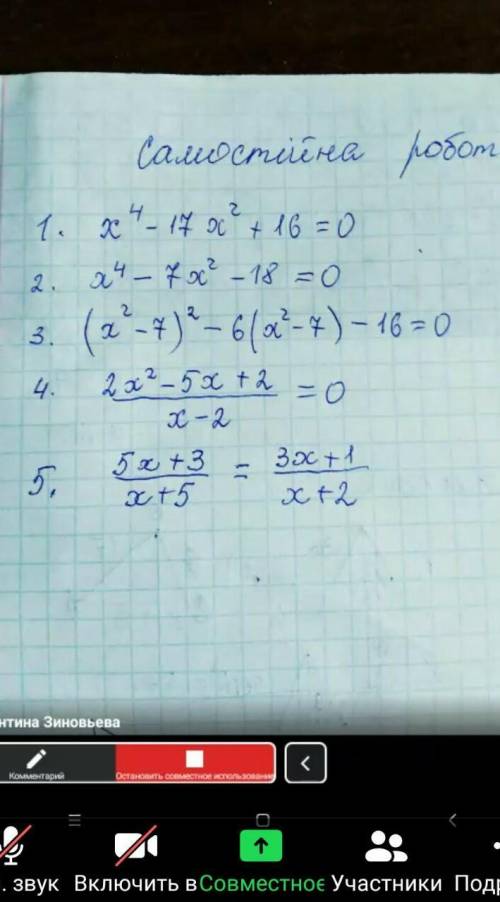 Самостійна робот
1. x⁴ - 17x² + 16 = 0
2. x⁴ - 7x² - 18 = 0
3. (x² - 7)² - 6(x² - 7) - 16 = 0
4. (2x² - 5x + 2)/(x - 2) = 0
5. (5x + 3)/(x + 5) = (3x + 1)/(x + 2)
нтина Зиновьева
Комментарий Остановить совместное использование
. звук Включить в Совместное Участники Подр